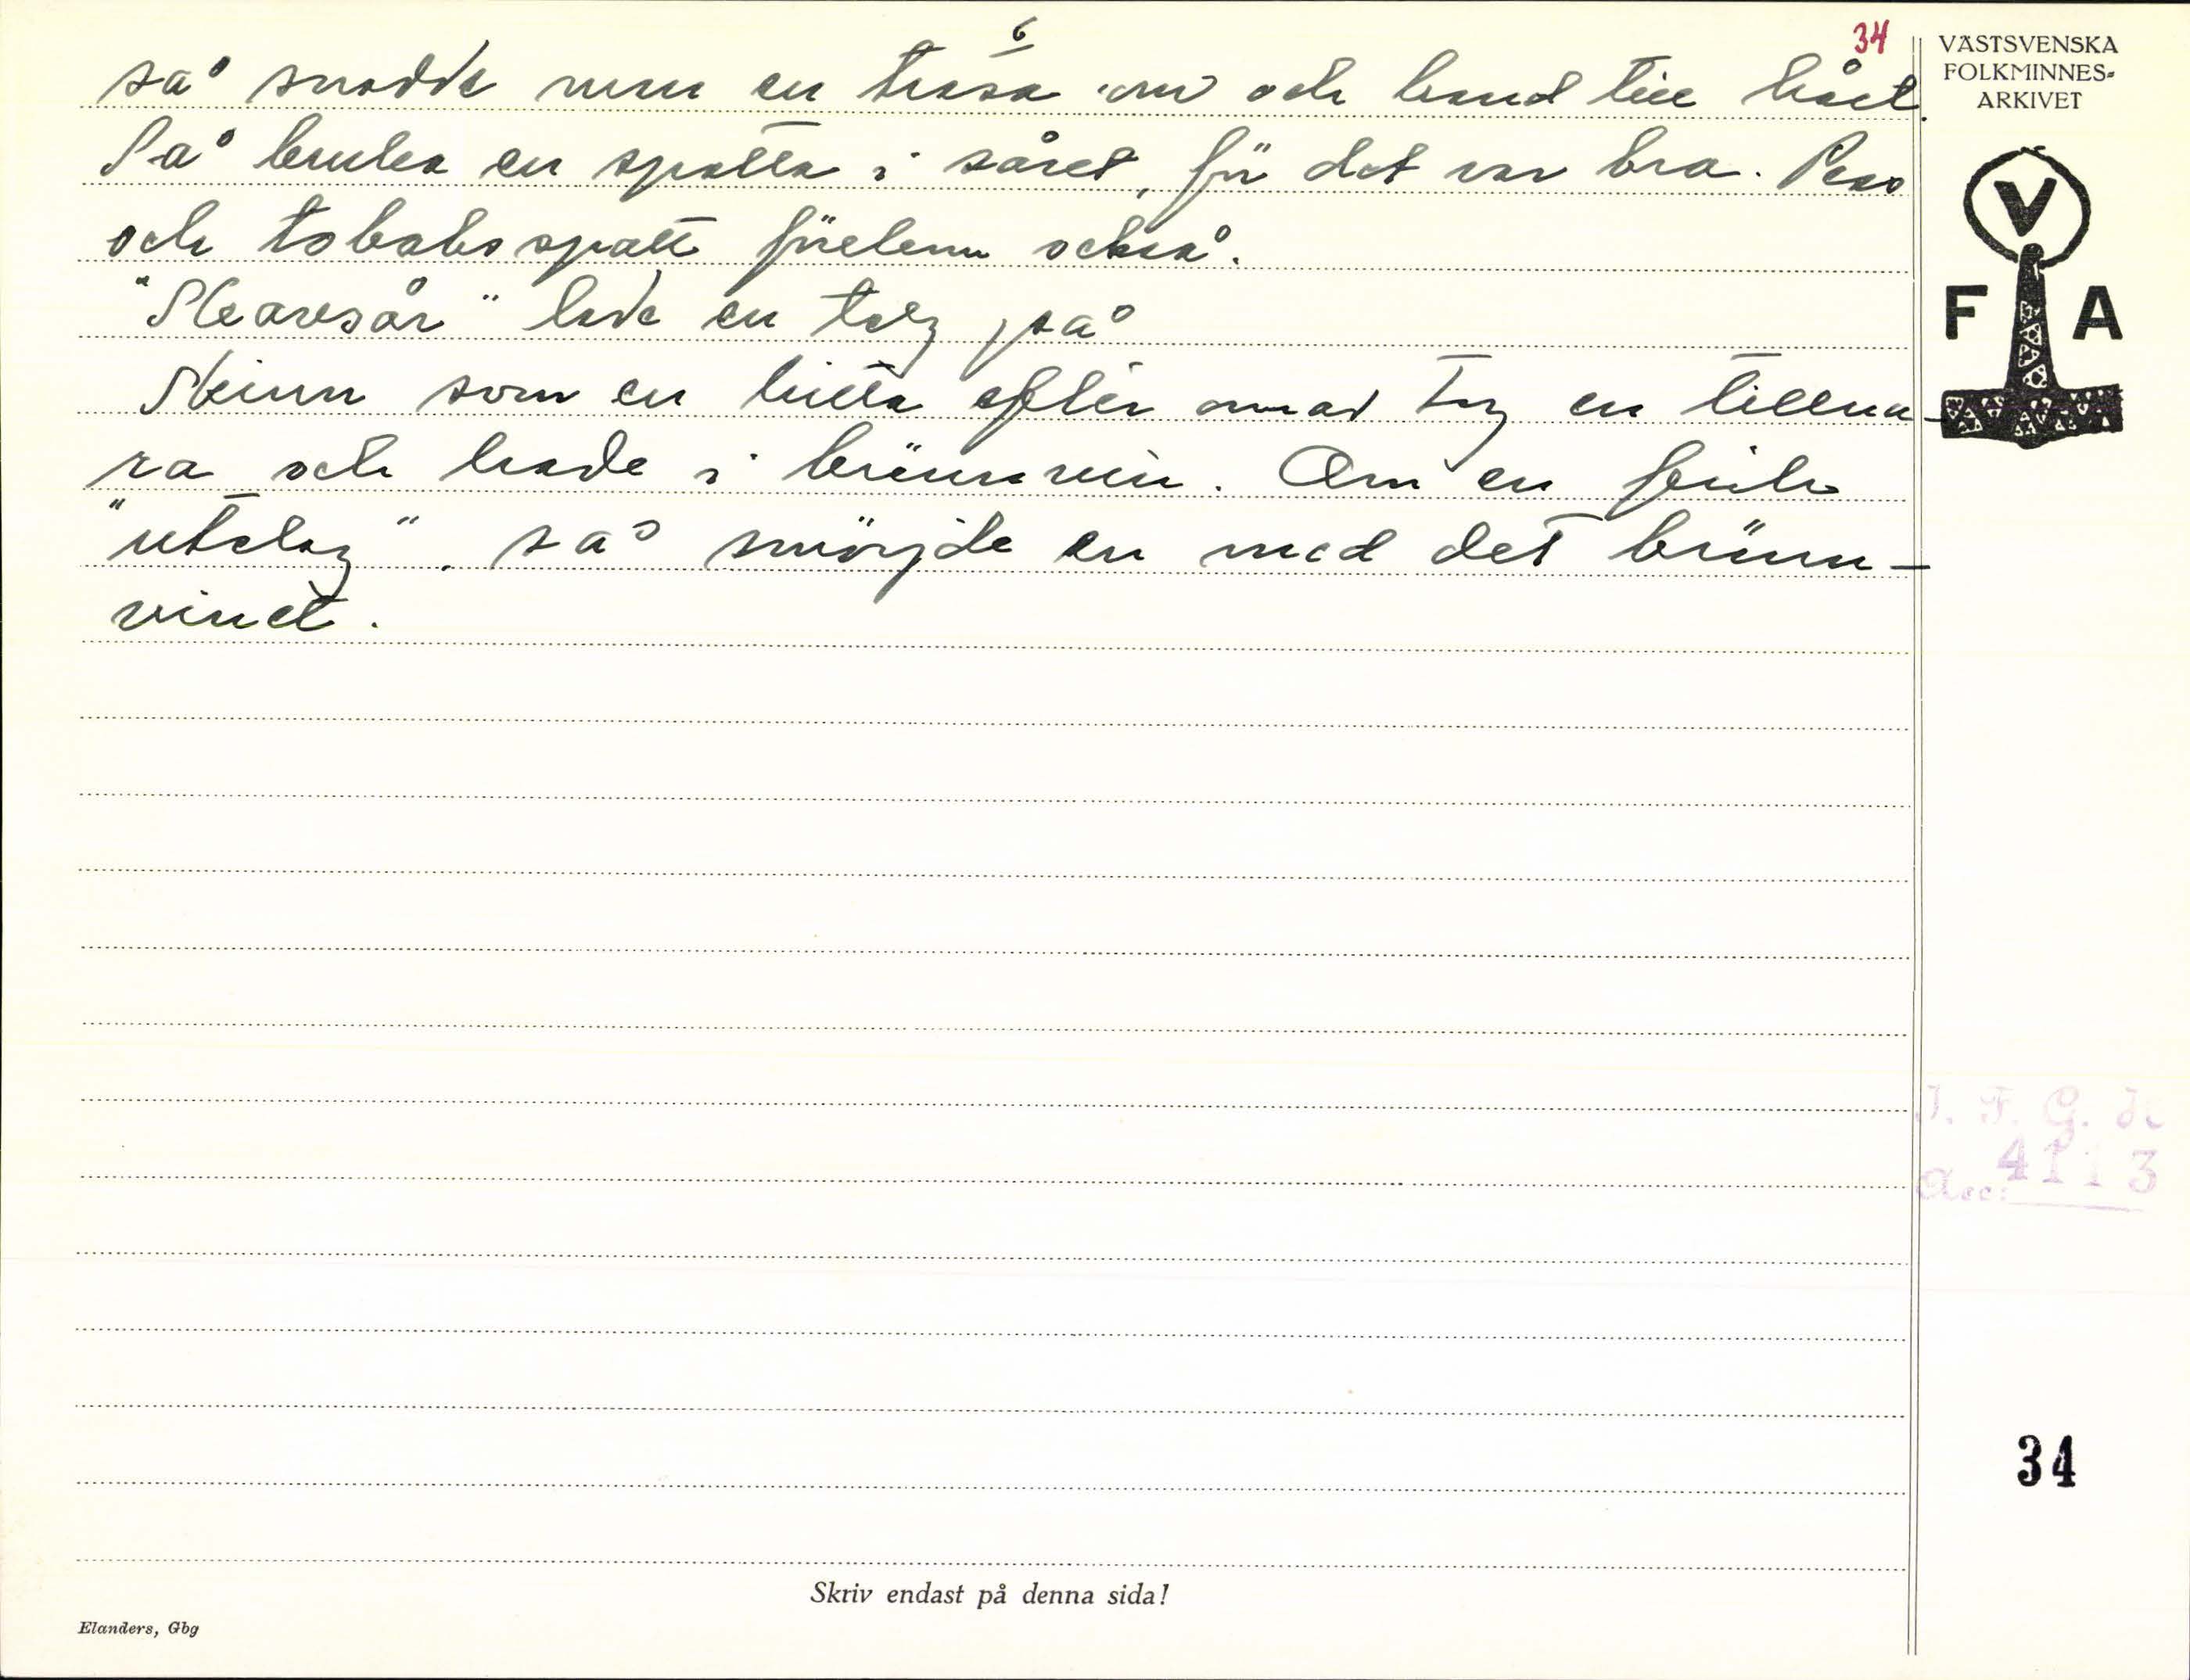 6
34
så snodde mm en trasa om och band till hårt.
Så bruka en spotta i såret, för det var bra. Piss
och tobaksspott förekom också.
"Skavsår" lade en talg på
Skinn som en hitta efter ormar tog en tillva-
ra och lade i brännvin. Om en fick
"utslag". så smörjde en med det bränn-
vinet.
VÄSTSVENSKA
FOLKMINNES-
ARKIVET
V
F A
I. F. G. H.
Acc: 4113
34
Skriv endast på denna sida!
Elanders, Gbg